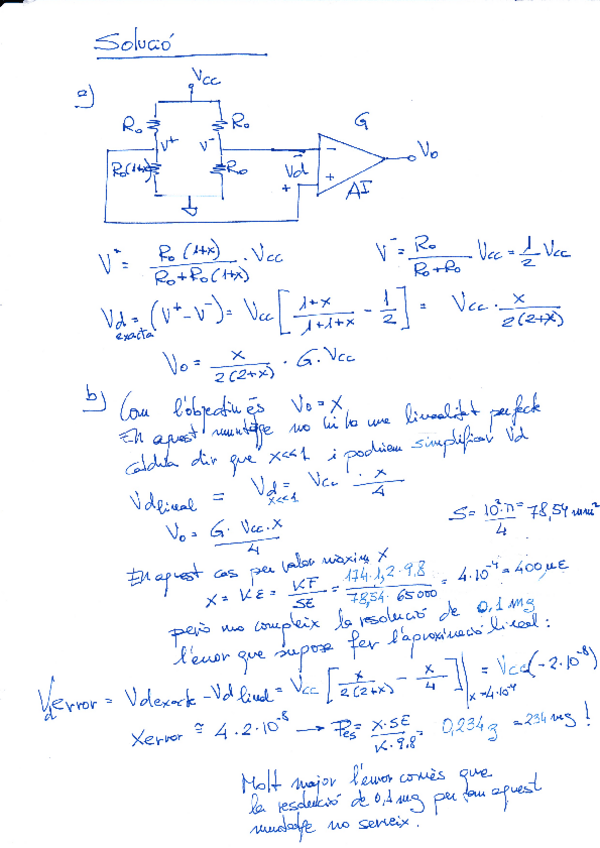 Solució
a)
Vcc
R₀ R₀ G
V⁺ V⁻
R₀(1+x) R₀ Vd - + V₀
+ AI
V⁺ = R₀(1+x) / R₀+R₀(1+x) · Vcc V⁻ = R₀ / R₀+R₀ Vcc = 1/2 Vcc
Vd exacta = (V⁺-V⁻) = Vcc [ 1+x / 1+1+x - 1/2 ] = Vcc · x / 2(2+x)
V₀ = x / 2(2+x) · G·Vcc
b) Com l'objectiu és V₀=x
En aquest muntatge no hi ha una linealitat perfecte
caldria dir que x<<1 i podriem simplificar Vd
Vd lineal = Vd x<<1 = Vcc · x / 4
V₀ = G·Vcc·x / 4 S = 10²·π / 4 = 78,54 mm²
En aquest cas per valor màxim x
x = Kε = KF / SE = 174·1,2·9,8 / 78,54·65000 = 4·10⁻⁴ = 400µε
però no compleix la resolució de 0,1mg
l'error que suposa fer l'aproximació lineal:
Vd error = Vd exacte - Vd lineal = Vcc [ x / 2(2+x) - x / 4 ] | x=4·10⁻⁴ = Vcc(-2·10⁻⁸)
x error ≅ 4·2·10⁻⁸ → Pes = x·SE / K·9.8 = 0,234g = 234mg !
Molt major l'error comès que
la resolució de 0,1mg per tan aquest
muntatge no serveix.